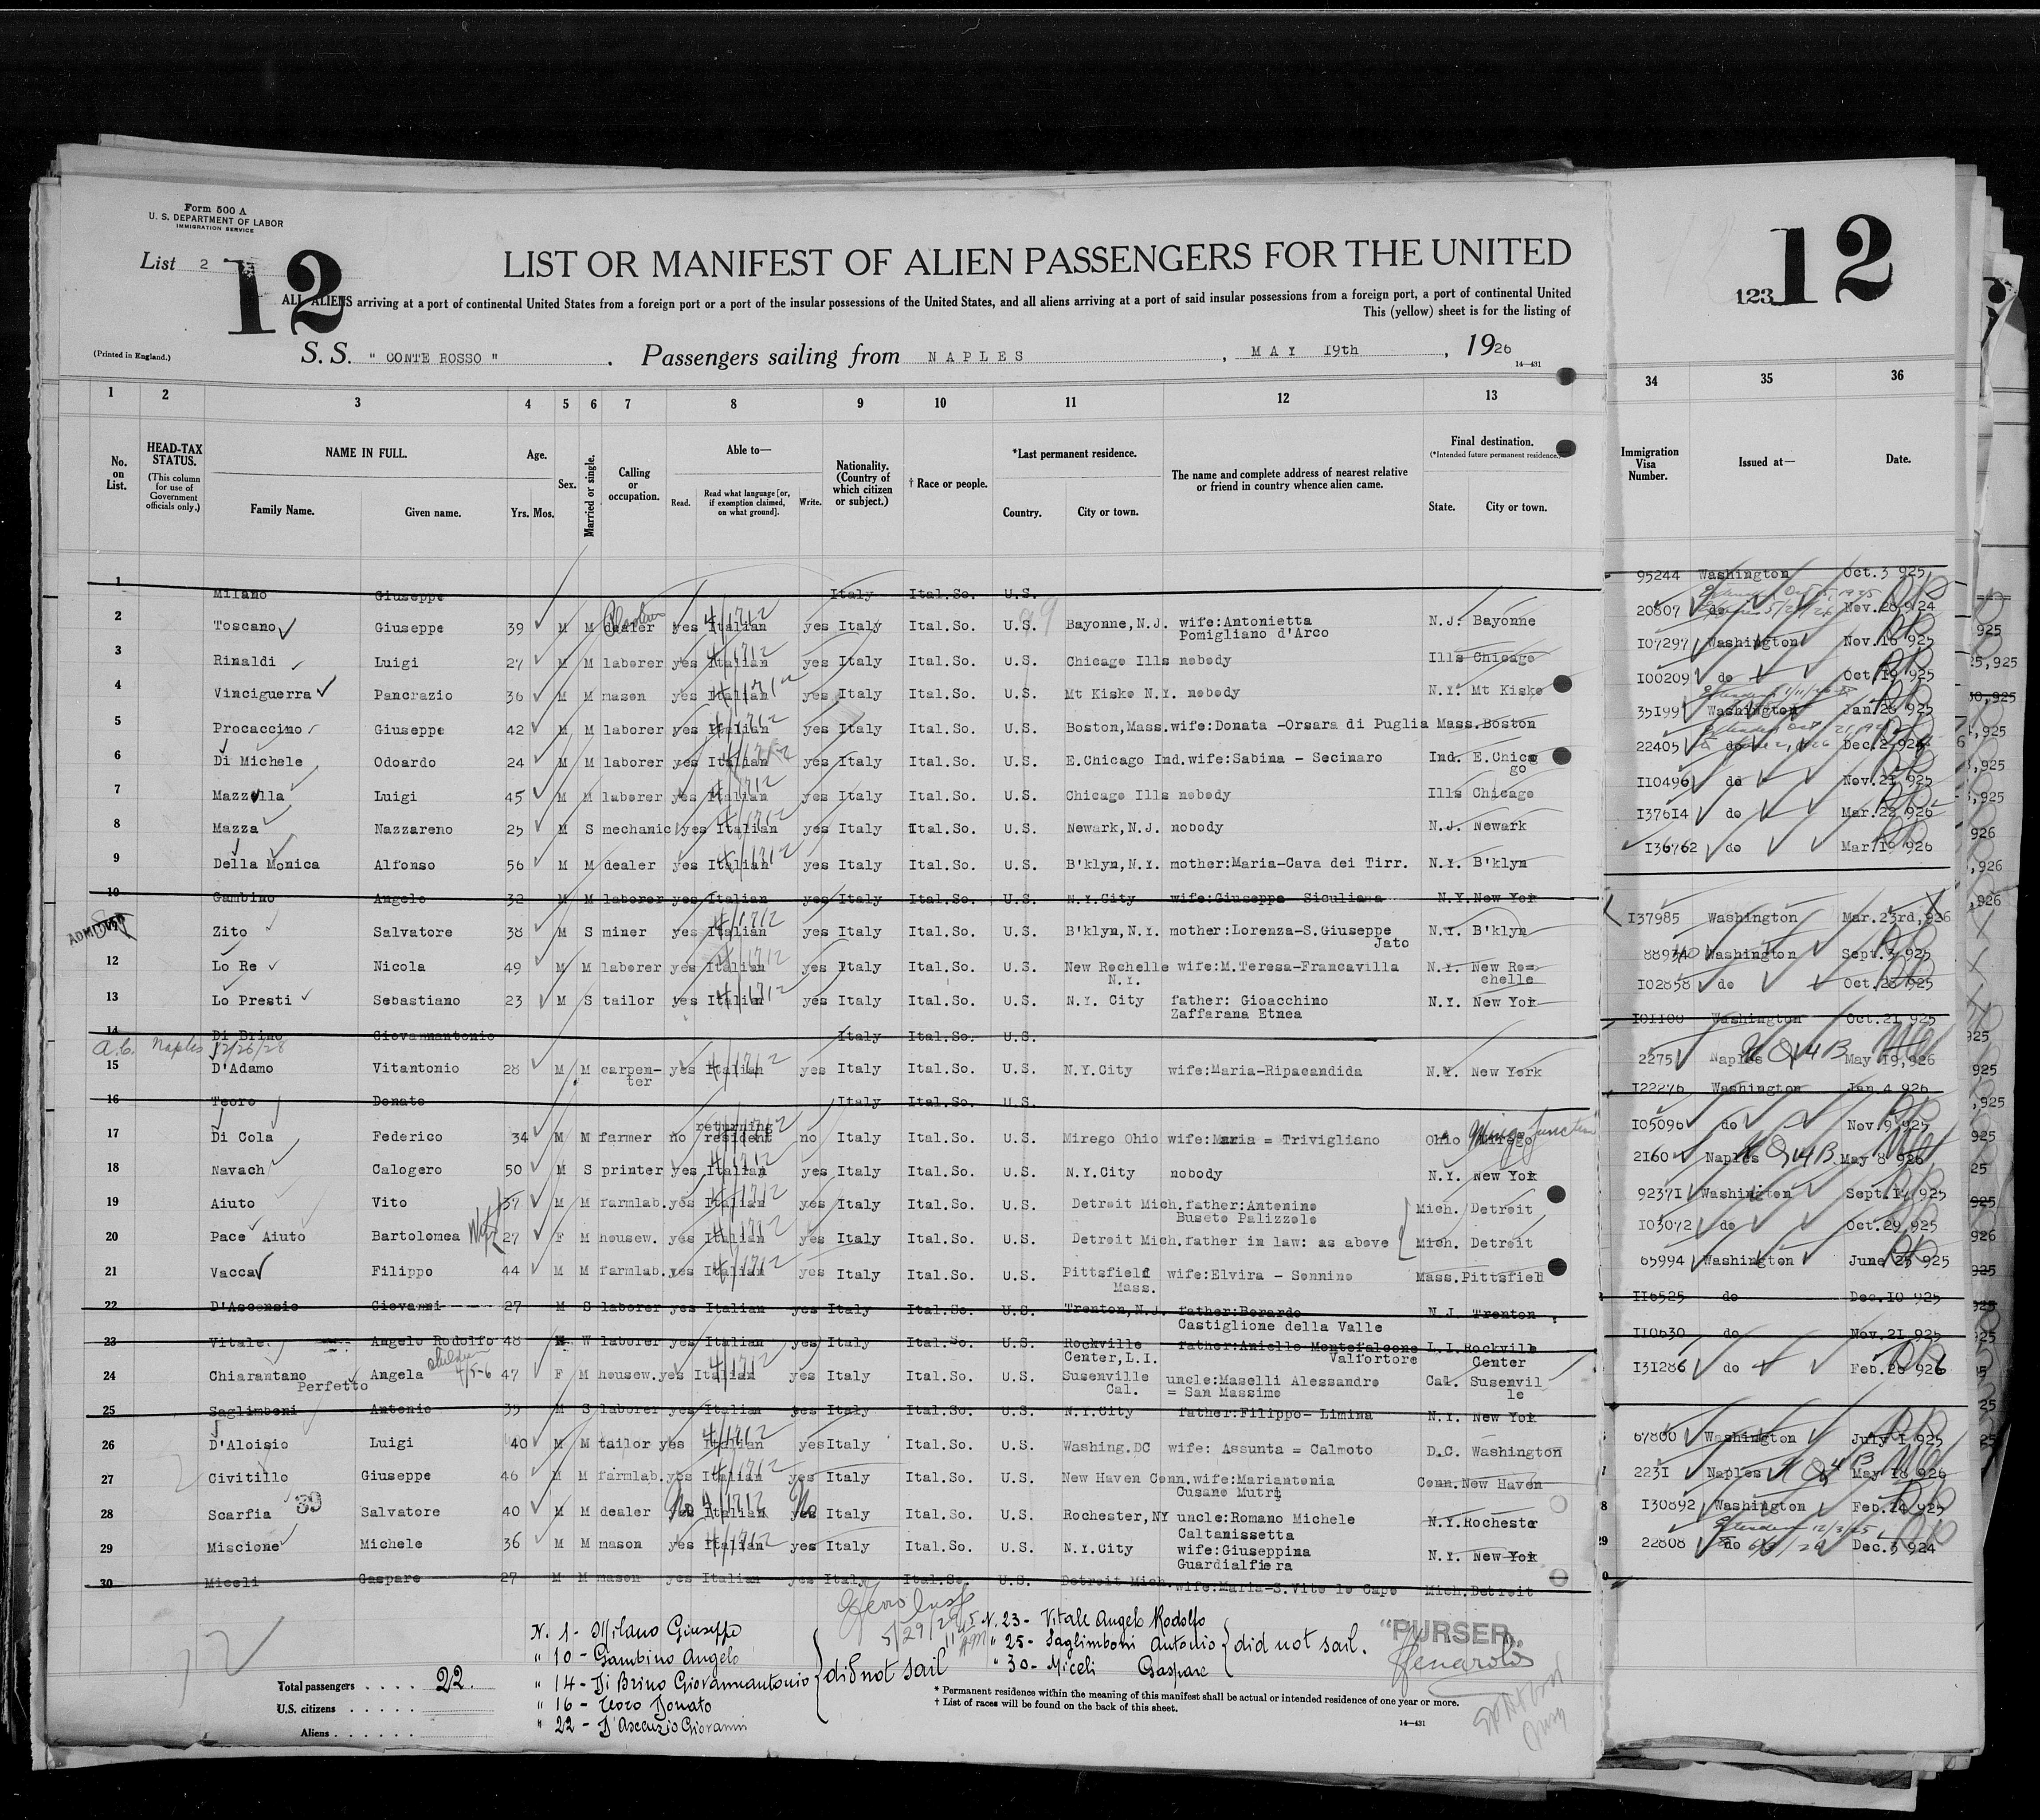 Form 500 A
U. S. DEPARTMENT OF LABOR
IMMIGRATION SERVICE
List 2
12
LIST OR MANIFEST OF ALIEN PASSENGERS FOR THE UNITED
123 12
ALL ALIENS arriving at a port of continental United States from a foreign port or a port of the insular possessions of the United States, and all aliens arriving at a port of said insular possessions from a foreign port, a port of continental United
This (yellow) sheet is for the listing of
(Printed in England.)
S. S. " CONTE ROSSO " . Passengers sailing from NAPLES , MAY 19th , 1926
14—431
1 2 3 4 5 6 7 8 9 10 11 12 13 34 35 36
No. on List.
HEAD-TAX STATUS. (This column for use of Government officials only.)
NAME IN FULL. Family Name. Given name.
Age. Yrs. Mos.
Sex.
Married or single.
Calling or occupation.
Able to— Read. Read what language [or, if exemption claimed, on what ground]. Write.
Nationality. (Country of which citizen or subject.)
† Race or people.
*Last permanent residence. Country. City or town.
The name and complete address of nearest relative or friend in country whence alien came.
Final destination. (*Intended future permanent residence.) State. City or town.
Immigration Visa Number.
Issued at—
Date.
1 Milano Giuseppe Italy Ital.So. U.S. 95244 Washington Oct.3 925
2 Toscano Giuseppe 39 M M dealer yes Italian yes Italy Ital.So. U.S. Bayonne,N.J. wife:Antonietta Pomigliano d'Arco N.J. Bayonne 20807 do Nov.28 924
3 Rinaldi Luigi 27 M M laborer yes Italian yes Italy Ital.So. U.S. Chicago Ills nobody Ills Chicago I07297 Washington Nov.16 925
4 Vinciguerra Pancrazio 36 M M mason yes Italian yes Italy Ital.So. U.S. Mt Kisko N.Y. nobody N.Y. Mt Kisko I00209 do Oct.19 925
5 Procaccino Giuseppe 42 M M laborer yes Italian yes Italy Ital.So. U.S. Boston,Mass. wife:Donata -Orsara di Puglia Mass.Boston 35I99 Washington Jan.26 925
6 Di Michele Odoardo 24 M M laborer yes Italian yes Italy Ital.So. U.S. E.Chicago Ind. wife:Sabina - Secinaro Ind. E.Chica go 22405 do Dec.2 924
7 Mazzella Luigi 45 M M laborer yes Italian yes Italy Ital.So. U.S. Chicago Ills nobody Ills Chicago I10496 do Nov.21 925
8 Mazza Nazzareno 25 M S mechanic yes Italian yes Italy Ital.So. U.S. Newark,N.J. nobody N.J. Newark I376I4 do Mar.22 926
9 Della Monica Alfonso 56 M M dealer yes Italian yes Italy Ital.So. U.S. B'klyn,N.Y. mother:Maria-Cava dei Tirr. N.Y. B'klyn I36762 do Mar.19 926
10 Gambino Angelo 32 M M laborer yes Italian yes Italy Ital.So. U.S. N.Y.City wife:Giuseppa Siculiana N.Y.New Yok
ADMITTED
Zito Salvatore 38 M S miner yes Italian yes Italy Ital.So. U.S. B'klyn,N.Y. mother:Lorenza-S.Giuseppe Jato N.Y. B'klyn I37985 Washington Mar.23rd,926
12 Lo Re Nicola 49 M M laborer yes Italian yes Italy Ital.So. U.S. New Rochelle N.Y. wife:M.Teresa-Francavilla N.Y. New Ro= chelle Washington Sept.3 925
13 Lo Presti Sebastiano 23 M S tailor yes Italian yes Italy Ital.So. U.S. N.Y. City father: Gioacchino Zaffarana Etnea N.Y. New Yok I02858 do Oct.28 925
14 Di Brino Giovannantonio Italy Ital.So. U.S. I01100 Washington Oct.21 925
a.c. Naples 12/26/28
15 D'Adamo Vitantonio 28 M M carpen- ter yes Italian yes Italy Ital.So. U.S. N.Y.City wife:Maria-Ripacandida N.Y. New York 2275 Naples May 19,926
16 Teoro Donato Italy Ital.So. U.S. I22276 Washington Jan.4 926
17 Di Cola Federico 34 M M farmer no returning resident no Italy Ital.So. U.S. Mirego Ohio wife:Maria = Trivigliano Ohio Mirego Mingo Junction I05096 do Nov.9 925
18 Navach Calogero 50 M S printer yes Italian yes Italy Ital.So. U.S. N.Y.City nobody N.Y. New Yok 2160 Naples May 8 926
19 Aiuto Vito 37 M M farmlab. yes Italian yes Italy Ital.So. U.S. Detroit Mich. father:Antonino Buseto Palizzolo Mich. Detroit 9237I Washington Sept.14 925
20 Pace Aiuto Bartolomea Wife 27 F M housew. yes Italian yes Italy Ital.So. U.S. Detroit Mich. father in law: as above Mich. Detroit I03072 do Oct.29,925
21 Vacca Filippo 44 M M farmlab. yes Italian yes Italy Ital.So. U.S. Pittsfield Mass. wife:Elvira - Sonnino Mass.Pittsfield 65994 Washington June 25 925
22 D'Ascenzio Giovanni 27 M S laborer yes Italian yes Italy Ital.So. U.S. Trenton,N.J. father:Berardo Castiglione della Valle N.J. Trenton II6525 do Dec.10 925
23 Vitale Angelo Rodolfo 48 M W laborer yes Italian yes Italy Ital.So. U.S. Rockville Center,L.I. father:Aniello Montefalcone Valfortore L.I.Rockville Center II0630 do Nov.21 925
24 Chiarantano Perfetto Angela children 4/5-6 47 F M housew. yes Italian yes Italy Ital.So. U.S. Susenville Cal. uncle:Maselli Alessandro = San Massimo Cal. Susenvil le I3I286 do Feb.26 926
25 Saglimboni Antonio 35 M S laborer yes Italian yes Italy Ital.So. U.S. N.Y.City father:Filippo- Limina N.Y. New Yok
26 D'Aloisio Luigi 40 M M tailor yes Italian yes Italy Ital.So. U.S. Washing.DC wife: Assunta = Calmoto D.C. Washington 67800 Washington July 1 925
27 Civitillo Giuseppe 46 M M farmlab. yes Italian yes Italy Ital.So. U.S. New Haven Conn. wife:Mariantonia Cusano Mutri Conn.New Haven 223I Naples May 18 926
28 Scarfia 39 Salvatore 40 M M dealer No Italian No Italy Ital.So. U.S. Rochester,NY uncle:Romano Michele Caltanissetta N.Y.Rocheste I30892 Washington Feb.24 925
29 Miscione Michele 36 M M mason yes Italian yes Italy Ital.So. U.S. N.Y.City wife:Giuseppina Guardialfiera N.Y. New Yok 22808 do Dec.3 924
30 Miceli Gaspare 27 M M mason yes Italian yes Italy Ital.So. U.S. Detroit Mich. wife:Maria-S.Vito lo Capo Mich.Detroit
N. 1 - Milano Giuseppe
" 10 - Gambino Angelo
" 14 - Di Brino Giovannantonio
" 16 - Teoro Donato
" 22 - D'Ascenzio Giovanni
did not sail
5/29/26
N. 23 - Vitale Angelo Rodolfo
" 25 - Saglimboni Antonio
" 30 - Miceli Gaspare
did not sail.
"PURSER"
12
Total passengers . . . . 22
U.S. citizens . . . . .
Aliens . . . . . .
* Permanent residence within the meaning of this manifest shall be actual or intended residence of one year or more.
† List of races will be found on the back of this sheet.
14—431